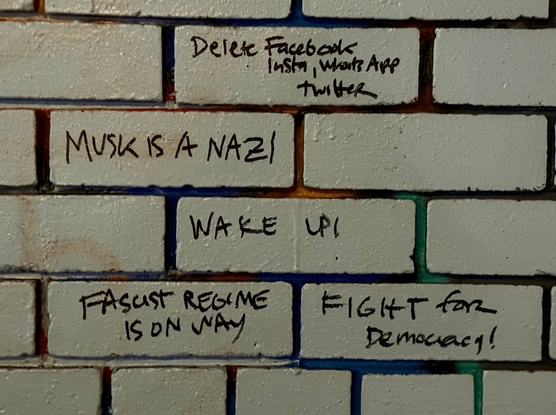 Delete Facebook
Insta, WhatsApp
Twitter
MUSK IS A NAZI
WAKE UP!
FASCIST REGIME
IS ON WAY
FIGHT for
Democracy!